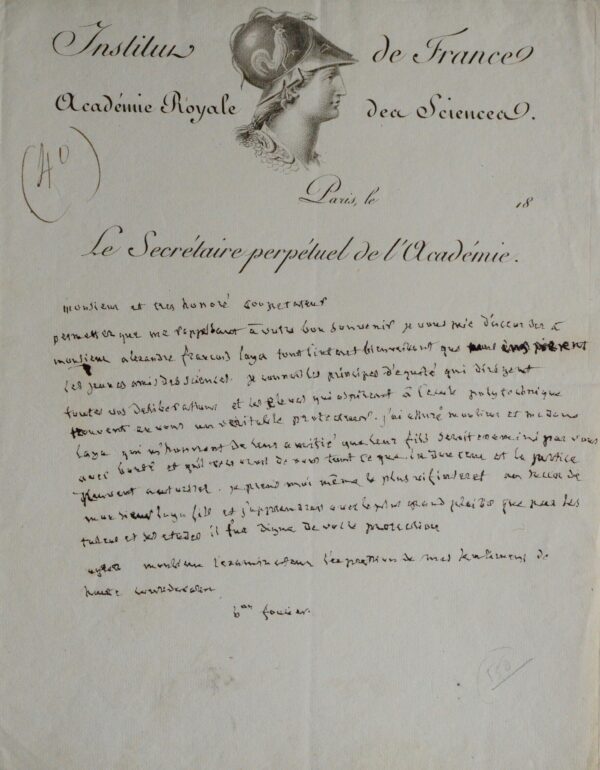 Institut de France
Académie Royale des Sciences.
(4°)
Paris, le 18
Le Secrétaire perpétuel de l'Académie.
monsieur et tres honoré
permettez que me rappellant à votre bon souvenir je vous prie d'accorder à
monsieur alexandre françois laya tout l'interet bienveillant que vous inspirent
les jeunes amis des sciences. je connais les principes d'equité qui dirigent
toutes vos deliberations et les eleves qui aspirent à l'ecole polytechnique
trouvent en vous un veritable protecteur. j'ai assuré monsieur et madame
laya qui m'honorent de leur amitié que leur fils seroit examiné par vous
avec bonté et qu'il recevroit de vous tout ce que l'indulgence et la justice
peuvent autoriser. je prens moi même le plus vif interet au succès de
monsieur laya fils et j'apprendrai avec le plus grand plaisir que par ses
talens et ses etudes il fut digne de votre protection
agréez monsieur l'examinateur l'expression de mes sentimens de
haute consideration
b^on fourier.